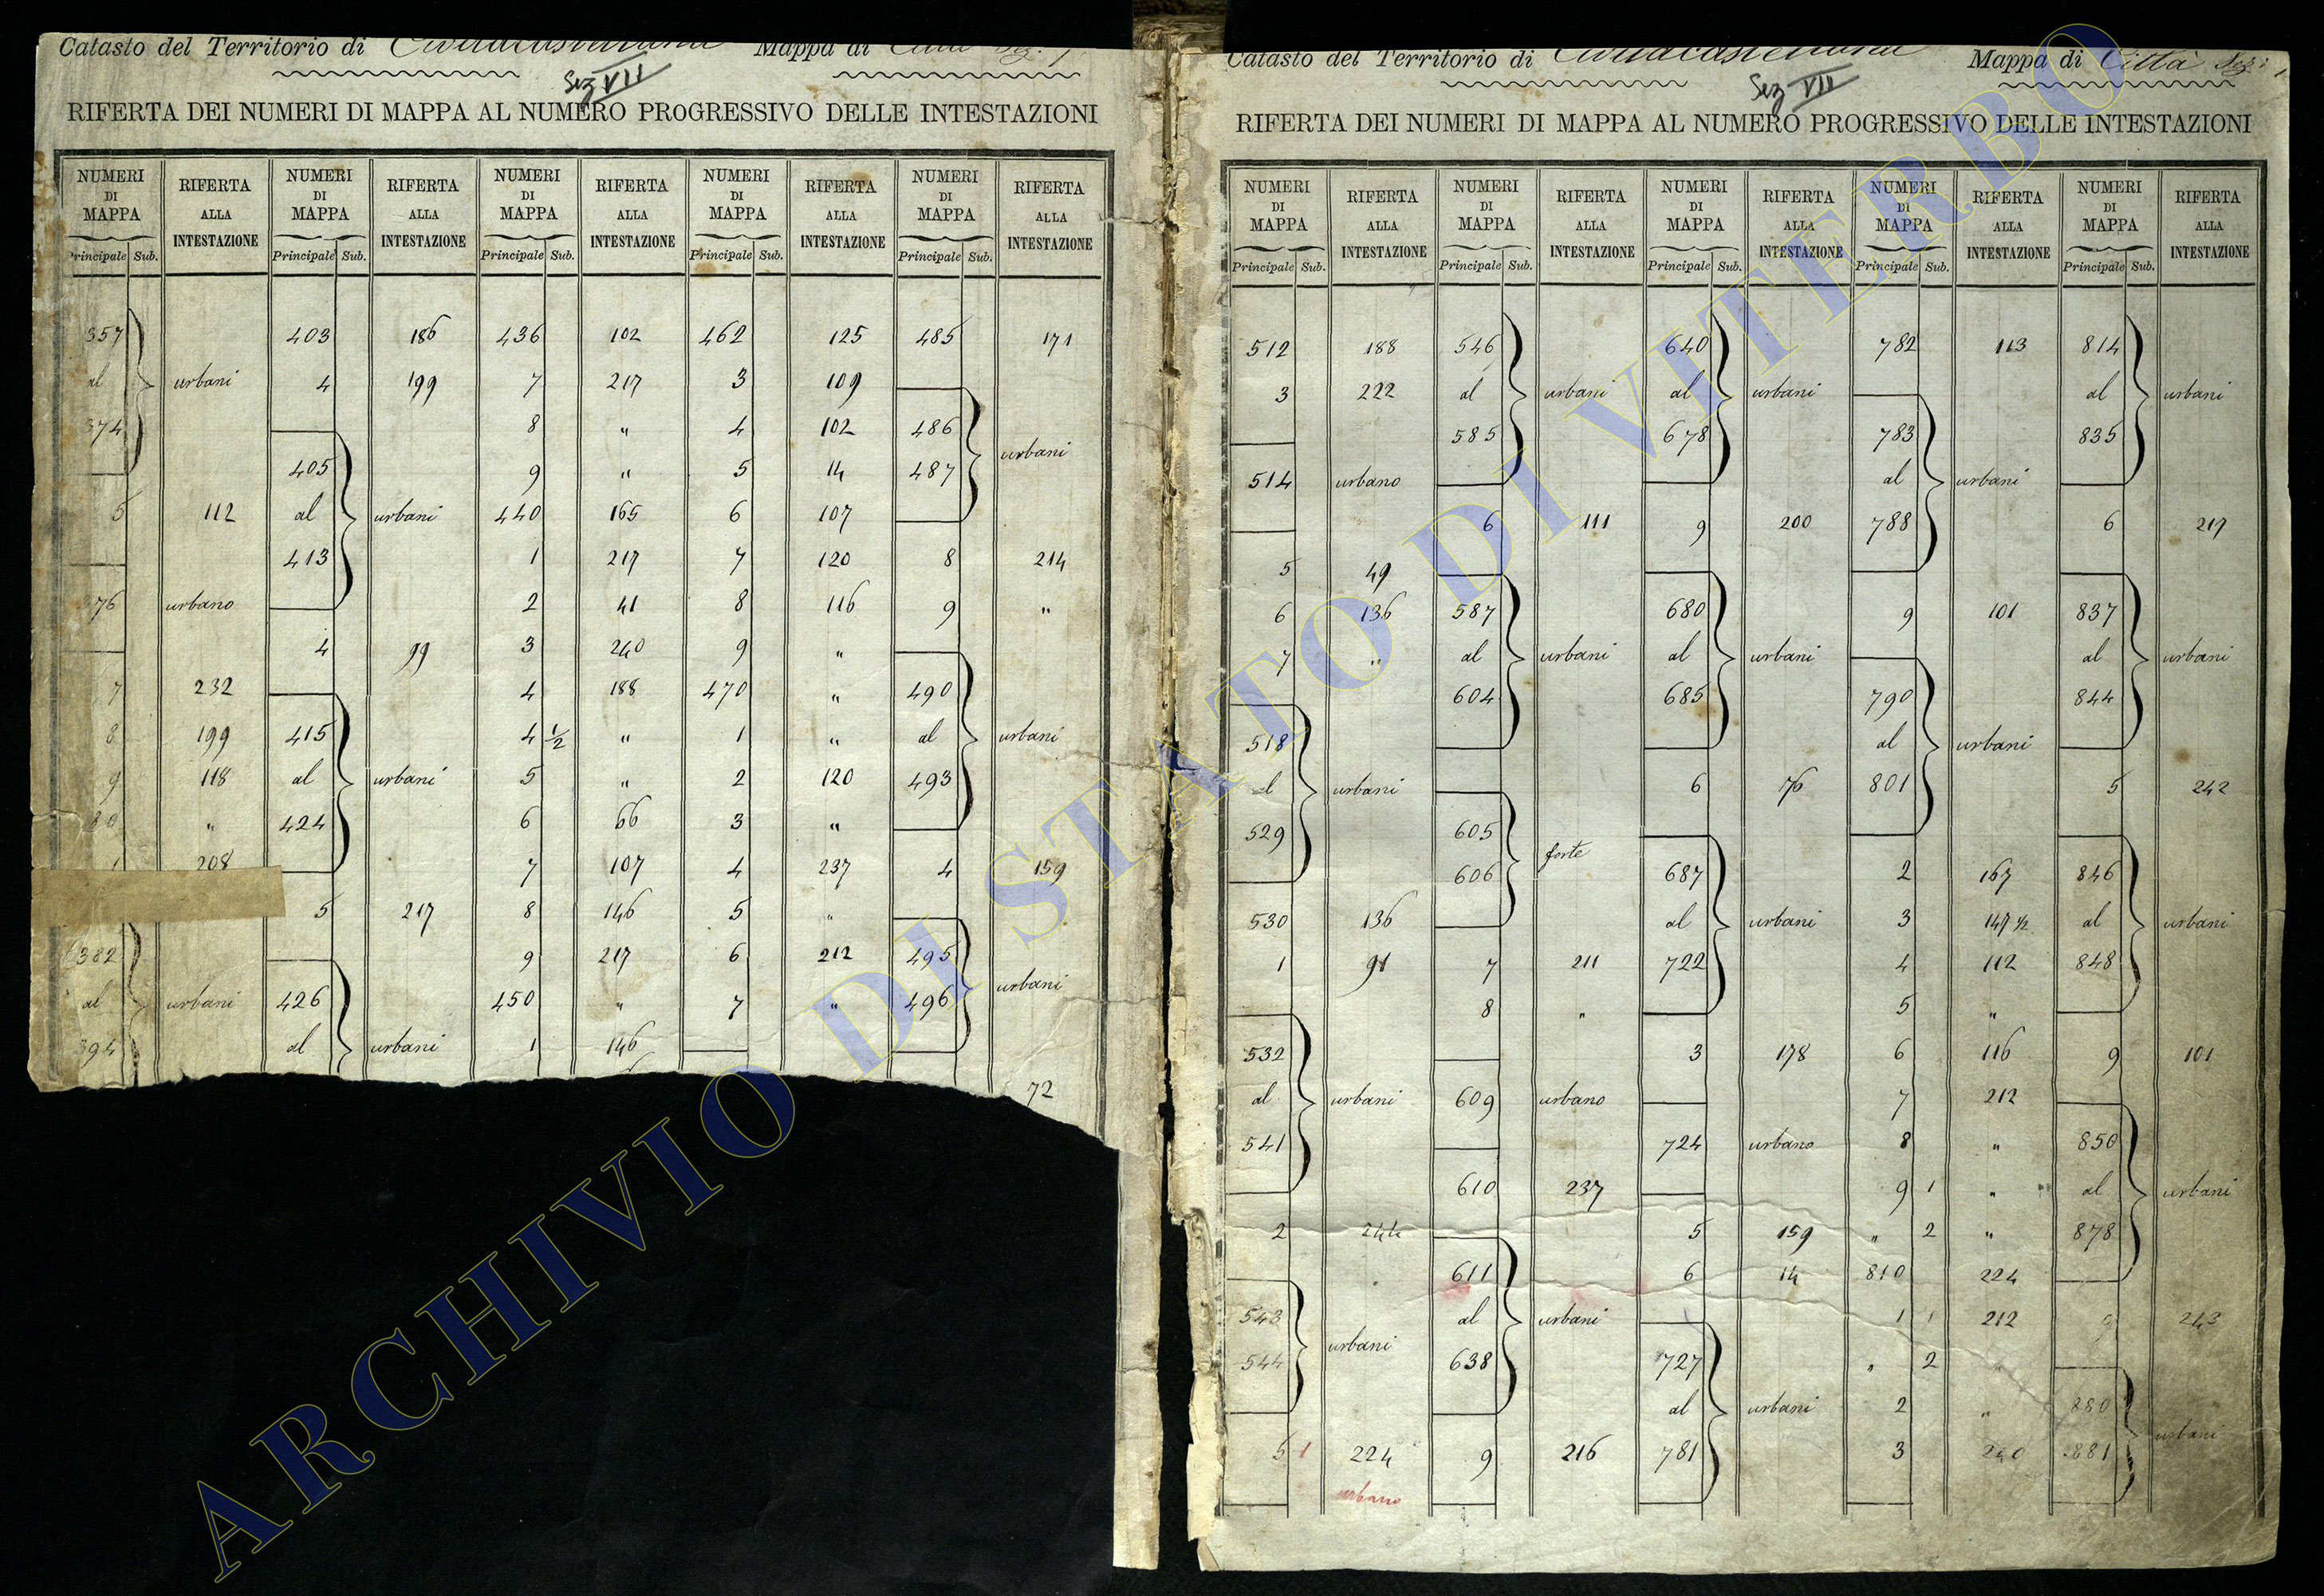 Catasto del Territorio di Civitacastellana Mappa di Città Sez. 1
Sez VII
RIFERTA DEI NUMERI DI MAPPA AL NUMERO PROGRESSIVO DELLE INTESTAZIONI
NUMERI DI MAPPA RIFERTA ALLA INTESTAZIONE NUMERI DI MAPPA RIFERTA ALLA INTESTAZIONE NUMERI DI MAPPA RIFERTA ALLA INTESTAZIONE NUMERI DI MAPPA RIFERTA ALLA INTESTAZIONE NUMERI DI MAPPA RIFERTA ALLA INTESTAZIONE
Principale Sub. Principale Sub. Principale Sub. Principale Sub. Principale Sub.
357 403 186 436 102 462 125 485 171
al urbani 4 199 7 217 3 109
374 8 " 4 102 486
urbani
405 9 " 5 14 487
5 112 al urbani 440 165 6 107
413 1 217 7 120 8 214
376 urbano 2 41 8 116 9 "
4 99 3 240 9 "
7 232 4 188 470 " 490
8 199 415 4 1/2 " 1 " al urbani
9 118 al urbani 5 " 2 120 493
80 " 424 6 66 3 "
1 208 7 107 4 237 4 159
5 217 8 146 5 "
382 9 217 6 212 495
al urbani 426 450 " 7 " 496 urbani
394 al urbani 1 146
72
Catasto del Territorio di Civitacastellana Mappa di Città Sez: 1
Sez VII
RIFERTA DEI NUMERI DI MAPPA AL NUMERO PROGRESSIVO DELLE INTESTAZIONI
NUMERI DI MAPPA RIFERTA ALLA INTESTAZIONE NUMERI DI MAPPA RIFERTA ALLA INTESTAZIONE NUMERI DI MAPPA RIFERTA ALLA INTESTAZIONE NUMERI DI MAPPA RIFERTA ALLA INTESTAZIONE NUMERI DI MAPPA RIFERTA ALLA INTESTAZIONE
Principale Sub. Principale Sub. Principale Sub. Principale Sub. Principale Sub.
512 188 546 640 782 113 814
3 222 al urbani al urbani al urbani
585 678 783 835
514 urbano al urbani
6 111 9 200 788 6 217
5 49
6 136 587 680 9 101 837
7 " al urbani al urbani al urbani
604 685 790 844
518 al urbani
al urbani 6 76 801 5 242
529 605
forte
606 687 2 167 846
530 136 al urbani 3 147 1/2 al urbani
1 91 7 211 722 4 112 848
8 " 5 "
532 3 178 6 116 9 101
al urbani 609 urbano 7 212
541 724 urbano 8 " 850
610 237 9 1 " al urbani
2 244 5 159 " 2 " 878
611 6 14 810 224
543 al urbani 1 1 212 9 243
urbani
544 638 727 " 2 "
al urbani 2 " 880
urbani
5 1 224 9 216 781 3 240 881
urbano
ARCHIVIO DI STATO DI VITERBO